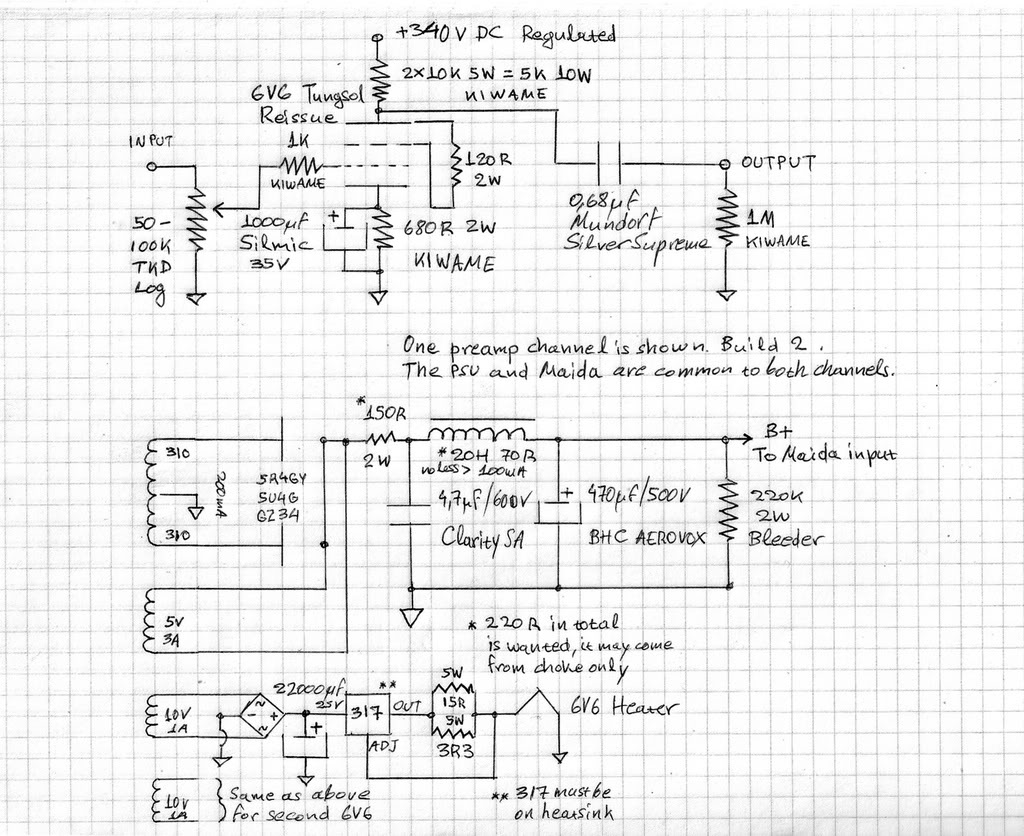 +340V DC Regulated
2×10K 5W = 5K 10W
KIWAME
6V6 Tungsol
Reissue
INPUT
1K
KIWAME
120R
2W
OUTPUT
50-
100K
TKD
Log
1000µF
Silmic
35V
680R 2W
KIWAME
0,68µF
Mundorf
Silver Supreme
1M
KIWAME
One preamp channel is shown. Build 2.
The PSU and Maida are common to both channels.
*150R
2W
310
310
200mA
5R4GY
5U4G
GZ34
*20H 70R
no less > 100mA
B+
To Maida input
4,7µF/600V
Clarity SA
+
470µF/500V
BHC AEROVOX
220K
2W
Bleeder
5V
3A
* 220R in total
is wanted, it may come
from choke only
10V
1A
~
- +
~
22000µF
25V
+
**
317
OUT
ADJ
5W
15R
5W
3R3
6V6 Heater
10V
1A
Same as above
for second 6V6
** 317 must be
on heatsink